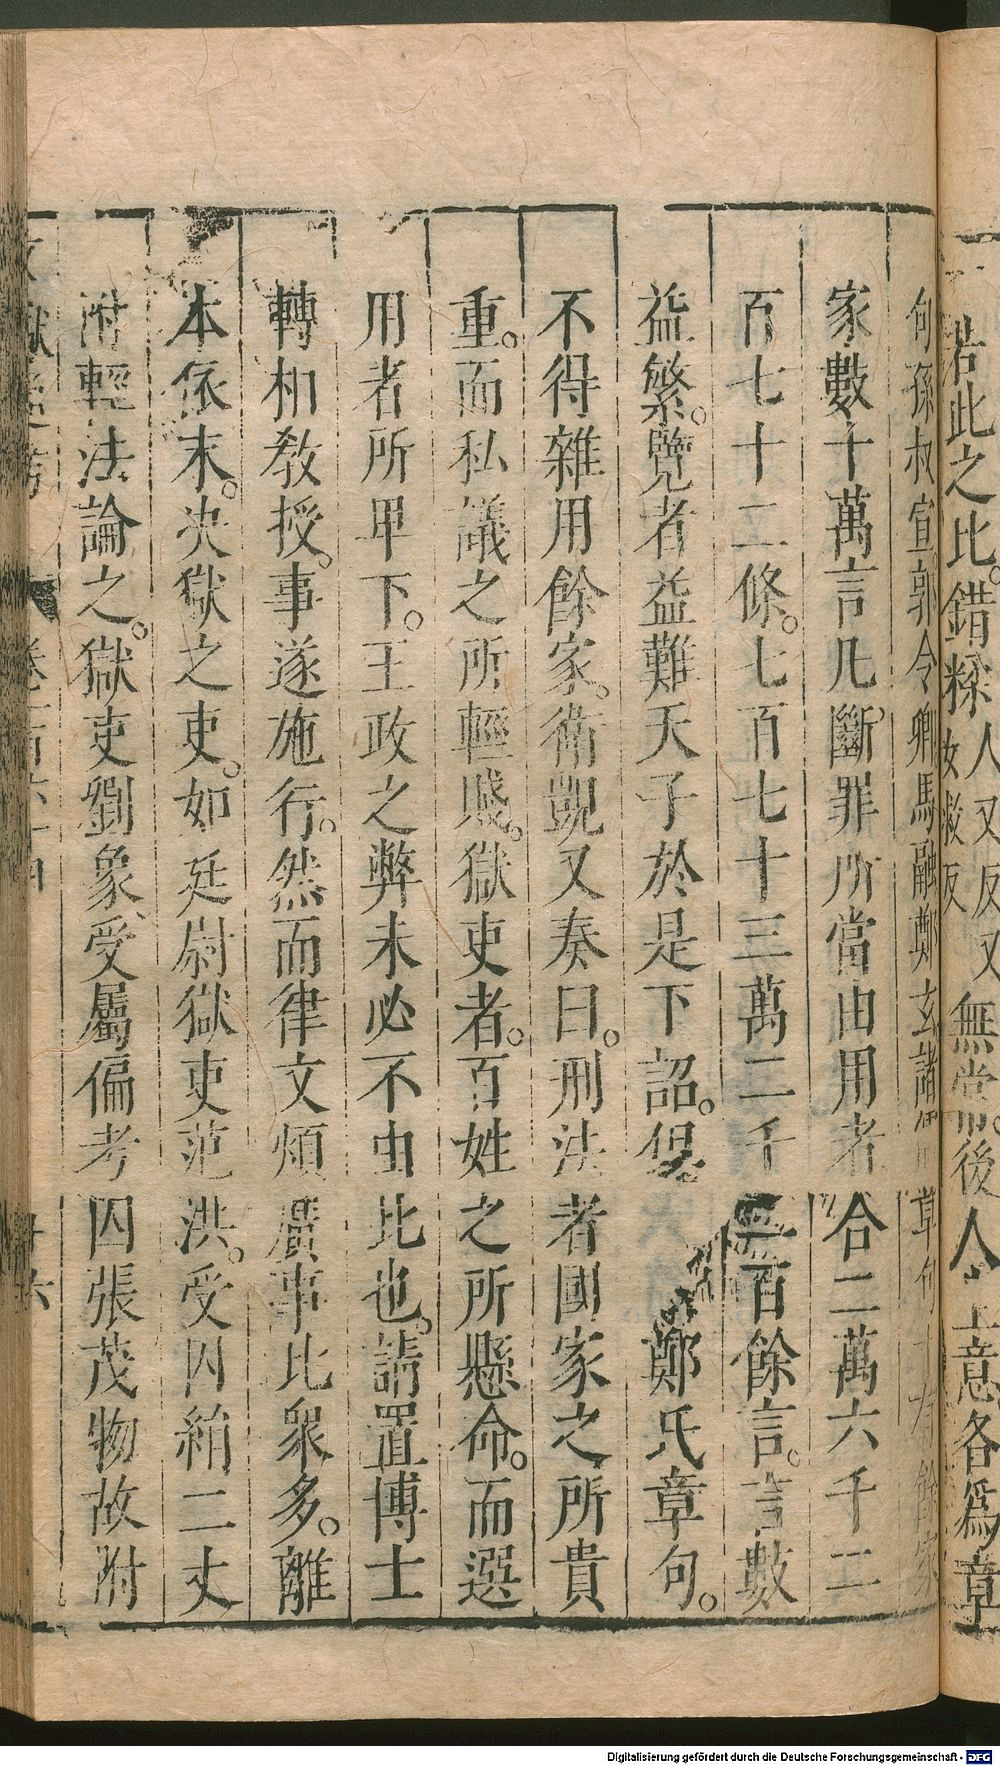 若此之比。錯糅人又反又無常。後人生意各爲章
女救反
句孫叔宣郭令卿馬融鄭玄諸儒章句十有餘家
家數十萬言凡斷罪所當由用者合二萬六千二
百七十二條。七百七十三萬二千二百餘言。言數
益繁。覽者益難天子於是下詔。但鄭氏章句。
不得雜用餘家。衛覬又奏曰。刑法者國家之所貴
重。而私議之所輕賤。獄吏者。百姓之所懸命。而選
用者所卑下。王政之弊未必不由比也。請置博士
轉相教授。事遂施行。然而律文煩廣事比衆多。離
本依末。决獄之吏。如廷尉獄吏范洪。受囚絹二丈
附輕法論之。獄吏劉象、受屬偏考囚張茂物故附
文獻通考 卷一百六十四 廿六
Digitalisierung gefördert durch die Deutsche Forschungsgemeinschaft - DFG